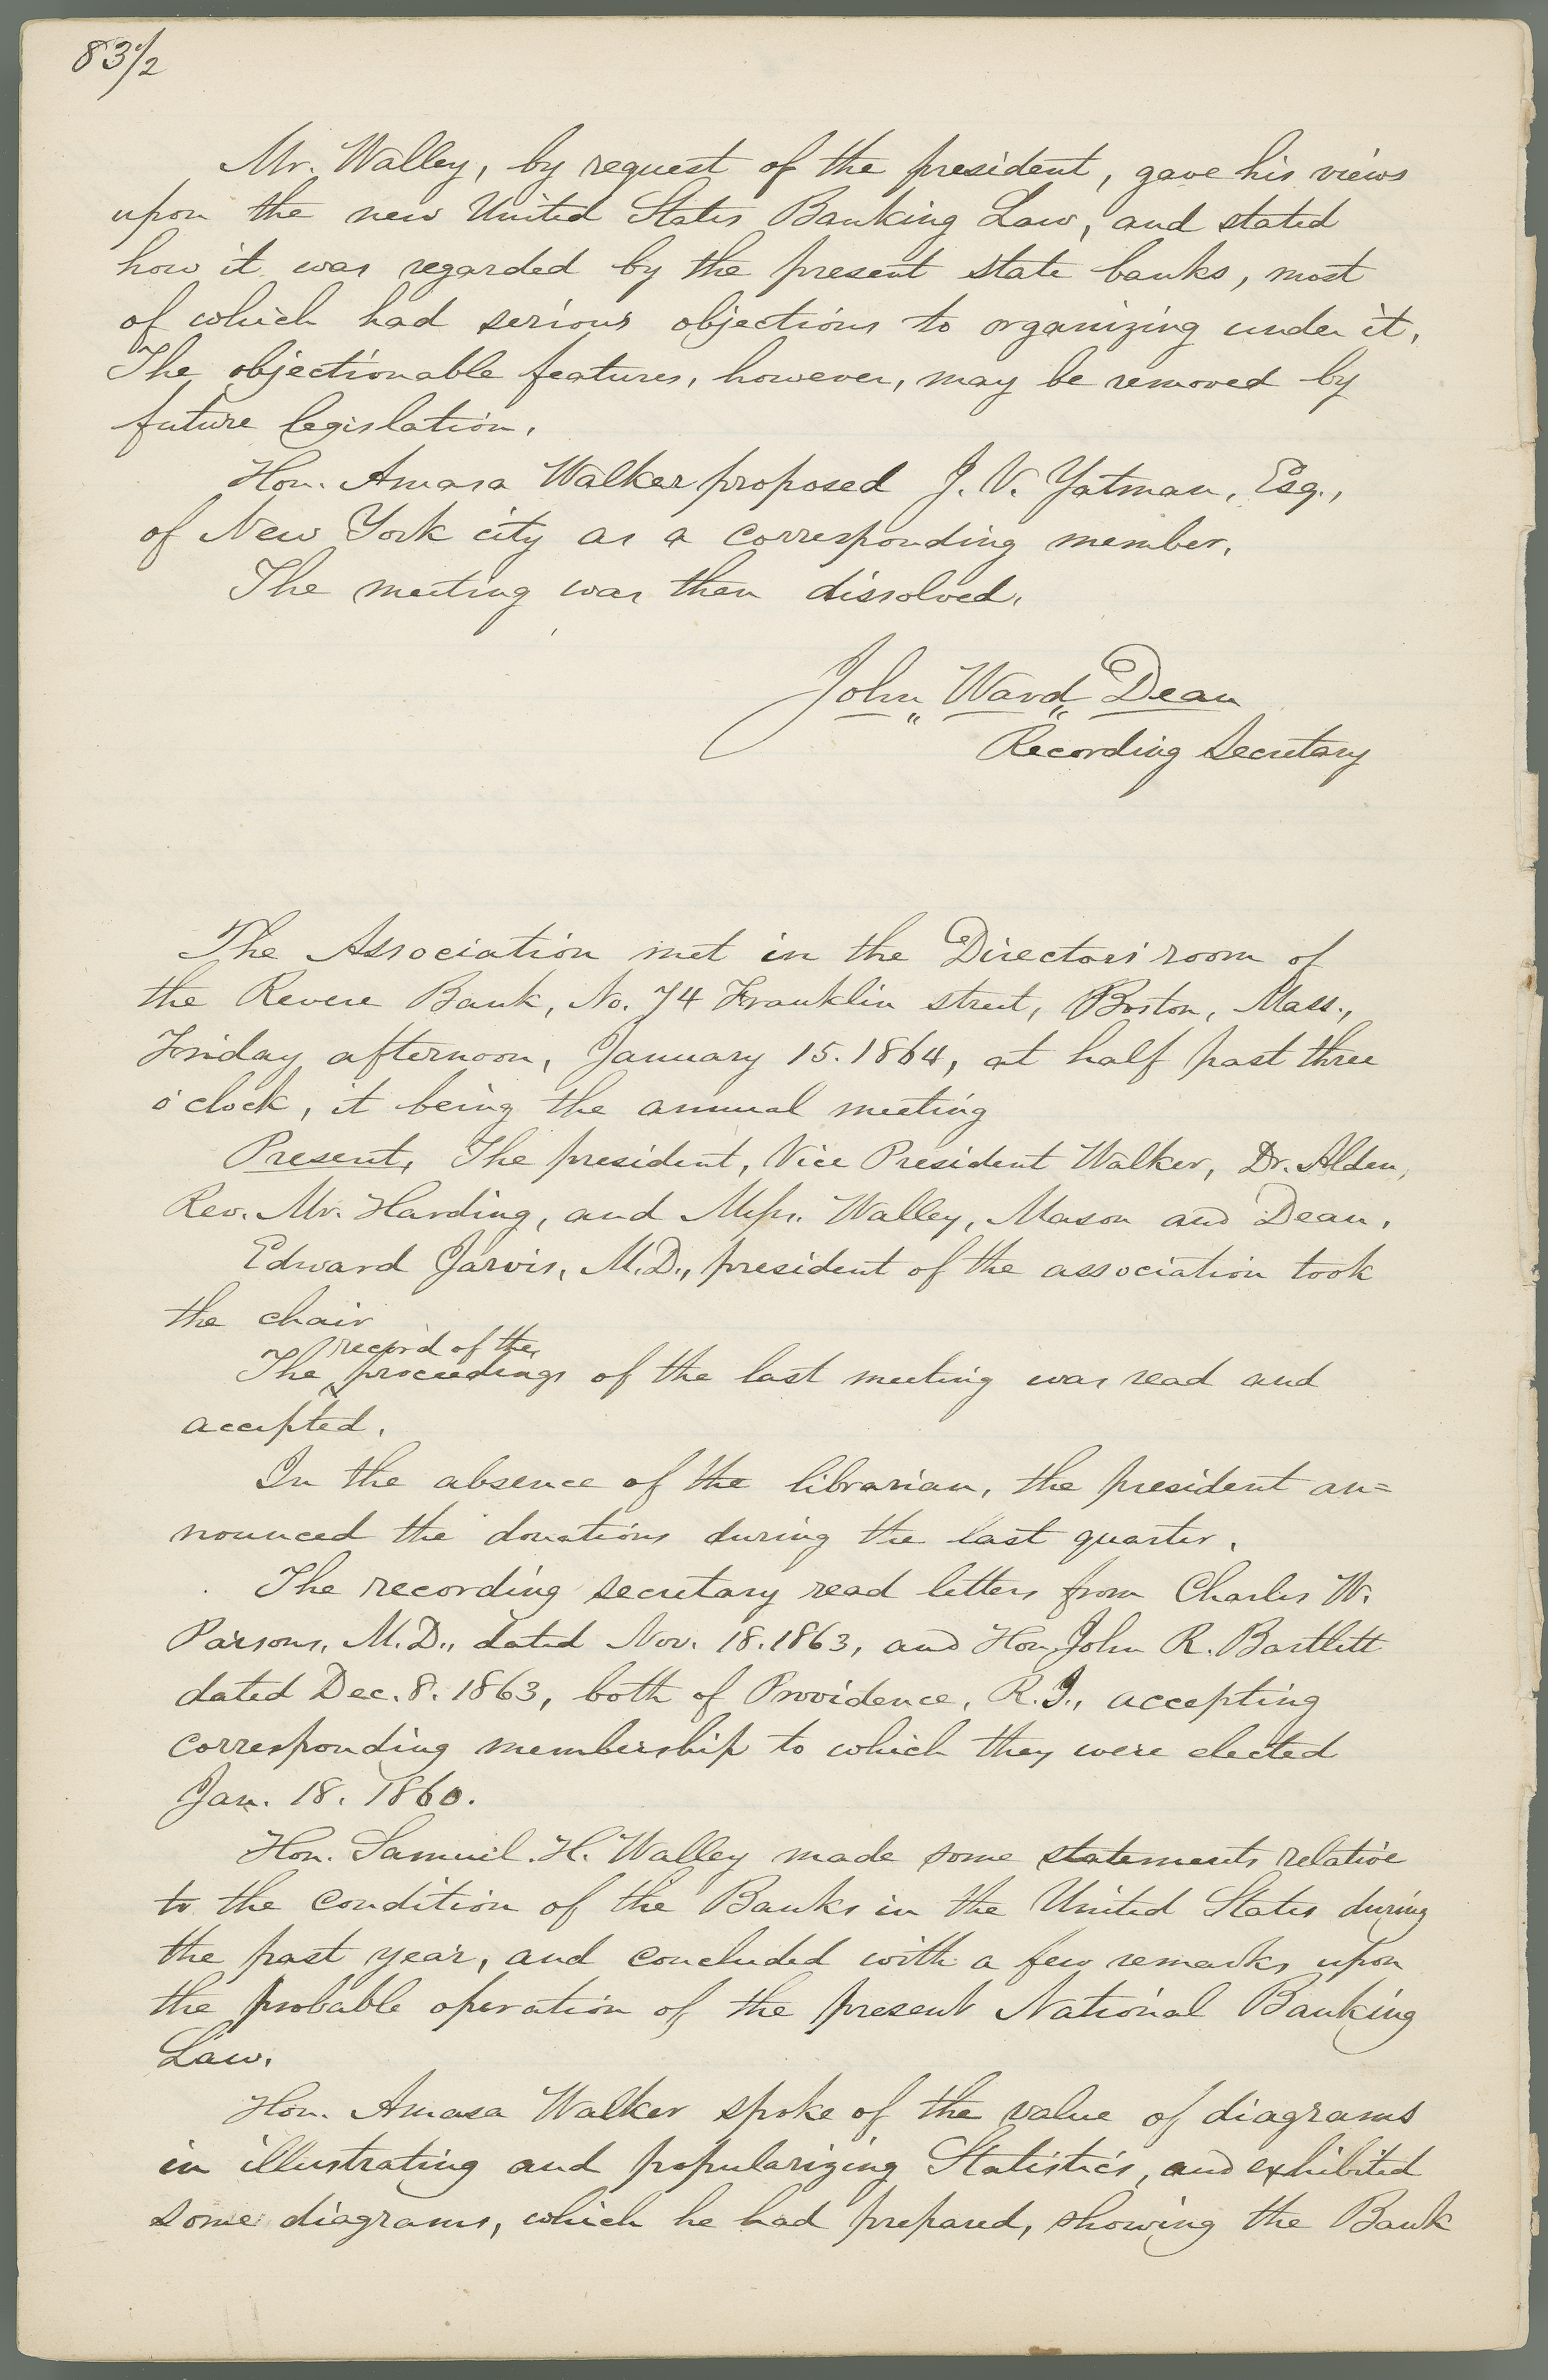 83 1/2
Mr. Walley, by request of the president, gave his views
upon the new United States Banking Law, and stated
how it was regarded by the present state banks, most
of which had serious objections to organizing under it.
The objectionable features, however, may be removed by
future legislation.
Hon. Amasa Walker proposed J. V. Yatman, Esq.,
of New York city as a corresponding member.
The meeting was then dissolved.
John Ward Dean
Recording Secretary
The Association met in the Directors' room of
the Revere Bank, No. 74 Franklin street, Boston, Mass.,
Friday afternoon, January 15. 1864, at half past three
o'clock, it being the annual meeting
Present, The president, Vice President Walker, Dr. Alden,
Rev. Mr. Harding, and Mess. Walley, Mason and Dean.
Edward Jarvis, M.D., president of the association took
the chair
record of the
The proceedings of the last meeting was read and
accepted.
In the absence of the librarian, the president an=
nounced the donations during the last quarter.
The recording secretary read letters from Charles W.
Parsons, M.D., dated Nov. 18. 1863, and Hon. John R. Bartlett
dated Dec. 8. 1863, both of Providence, R.I., accepting
corresponding membership to which they were elected
Jan. 18. 1860.
Hon. Samuel H. Walley made some statements relative
to the condition of the Banks in the United States during
the past year, and concluded with a few remarks upon
the probable operation of the present National Banking
Law.
Hon. Amasa Walker spoke of the value of diagrams
in illustrating and popularizing Statistics, and exhibited
some diagrams, which he had prepared, showing the Bank